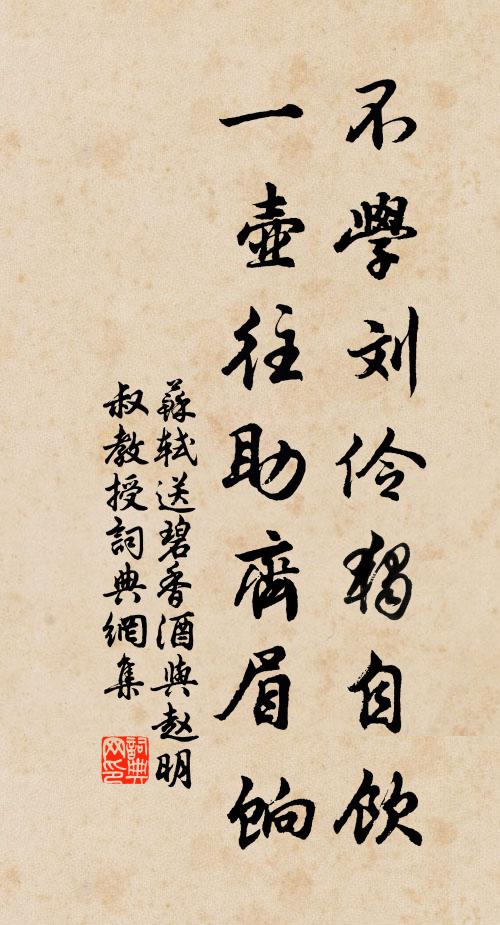 不學刘伶獨自飲
一壺往助齊眉餉
蘇軾送碧香酒與赵明
叔教授詞典網集
詞典网印